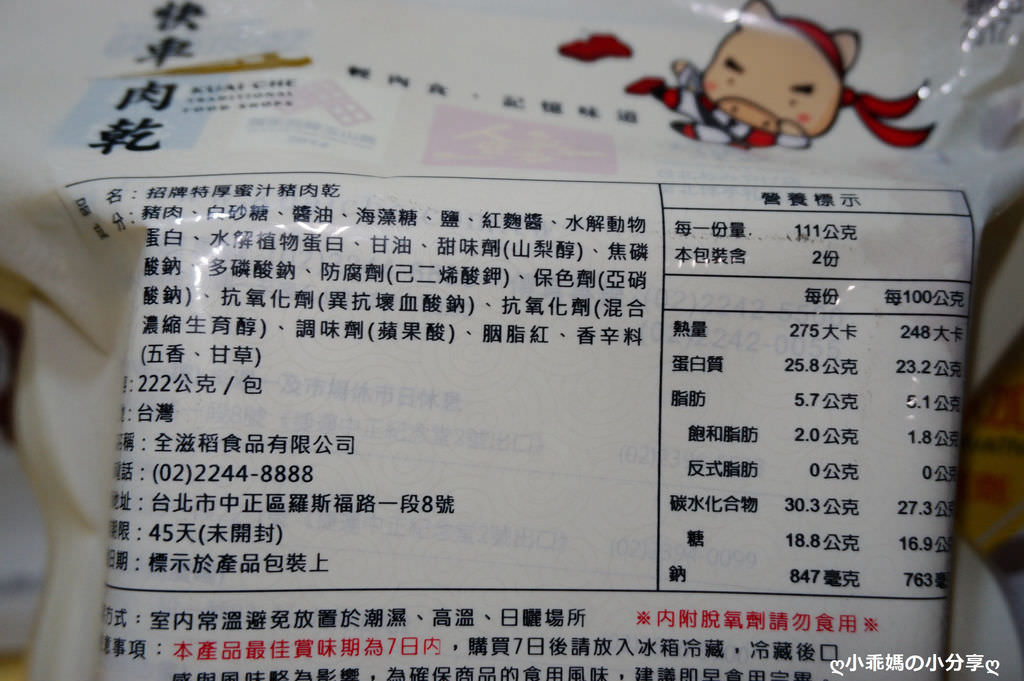 快車
肉乾
KUAI CHE
TRADITIONAL
FOOD SHOPS
輕肉食、記憶味道
品名：招牌特厚蜜汁豬肉乾
分：豬肉、白砂糖、醬油、海藻糖、鹽、紅麴醬、水解動物
蛋白、水解植物蛋白、甘油、甜味劑(山梨醇)、焦磷
酸鈉、多磷酸鈉、防腐劑(己二烯酸鉀)、保色劑(亞硝
酸鈉)、抗氧化劑(異抗壞血酸鈉)、抗氧化劑(混合
濃縮生育醇)、調味劑(蘋果酸)、胭脂紅、香辛料
(五香、甘草)
：222公克 / 包
：台灣
稱：全滋稻食品有限公司
電話：(02)2244-8888
地址：台北市中正區羅斯福路一段8號
期限：45天(未開封)
日期：標示於產品包裝上
營養標示
每一份量 111公克
本包裝含 2份
每份 每100公克
熱量 275大卡 248大卡
蛋白質 25.8公克 23.2公克
脂肪 5.7公克 5.1公克
飽和脂肪 2.0公克 1.8公
反式脂肪 0公克 0公
碳水化合物 30.3公克 27.3公
糖 18.8公克 16.9公
鈉 847毫克 763毫
方式：室內常溫避免放置於潮濕、高溫、日曬場所 ※內附脫氧劑請勿食用※
事項：本產品最佳賞味期為7日內，購買7日後請放入冰箱冷藏，冷藏後口
感與風味略為影響，為確保商品的食用風味，建議即早食用完畢，
ღ小乖媽の小分享ღ